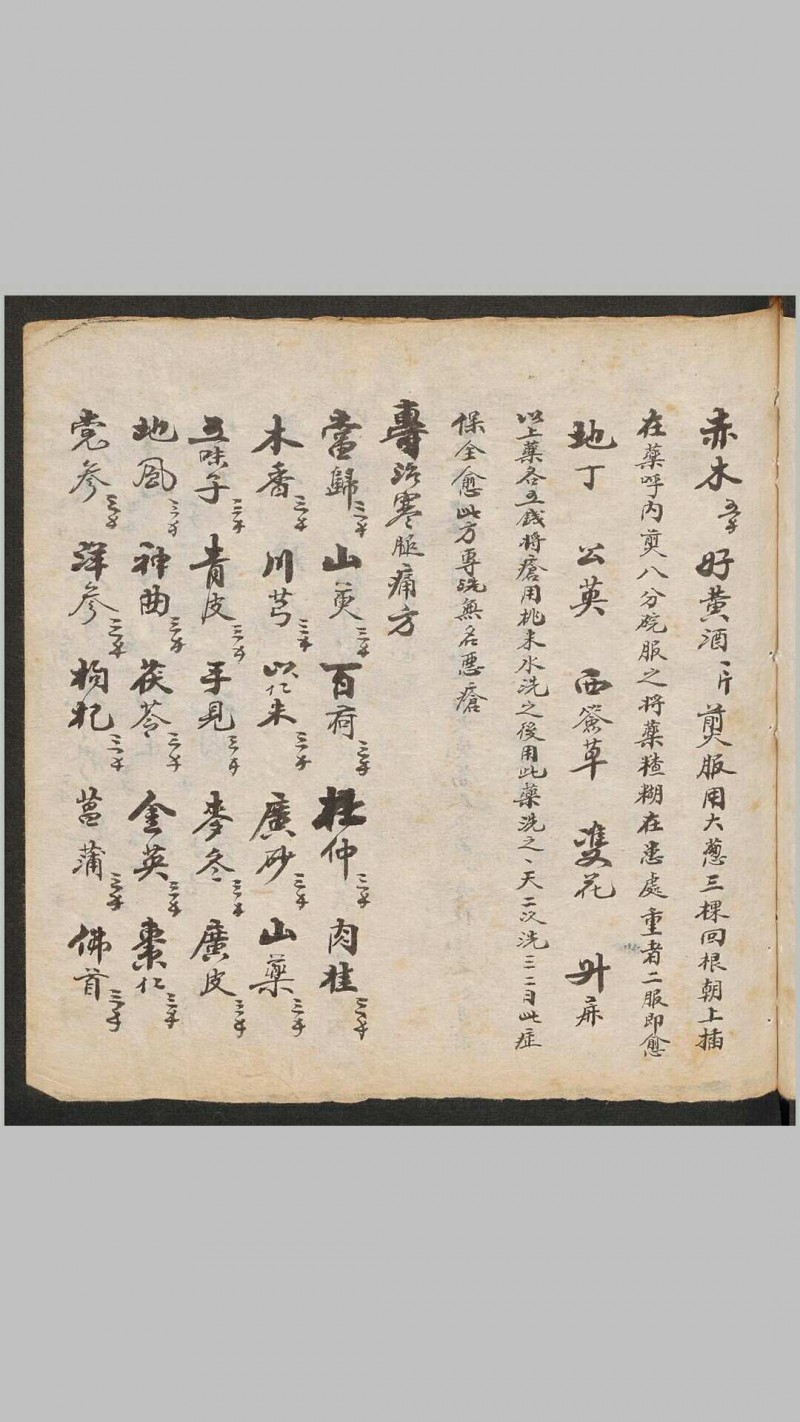 赤木五个好黄酒一斤煎服用大葱三棵回根朝上插
在藥呼内煎八分碗服之将藥楂糊在患處重者二服即愈
地丁 公英 西簽草 雙花 升麻
以上藥各五錢将瘡用桃末水洗之後用此藥洗之一天二次洗三二日此症
保全愈此方專洗無名惡瘡
專治寒腿痛方
當歸三个 山萸三个 百荷三个 杜仲三个 肉桂三个
木香三个 川芎三个 苡仁末三个 廣砂三个 山藥三个
五味子三个 青皮三个 手見三个 麥冬三个 廣皮三个
地風三个 神曲三个 茯苓三个 金英三个 棗仁三个
党参三个 洋参三个 枸杞三个 菖蒲三个 佛首三个